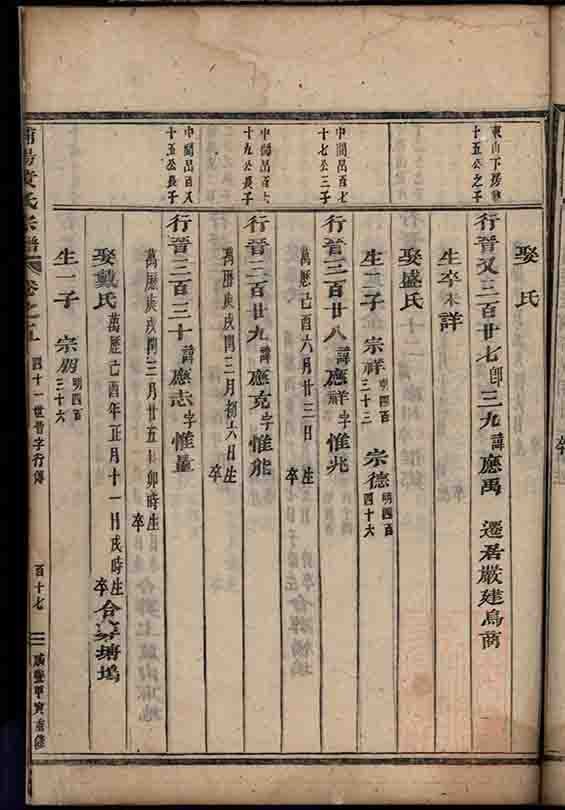 娶 氏
東山下房
十五公之子
行晉又三百廿七卽三九諱應禹 遷居嚴建烏商
生卒未詳
娶盛氏
生二子 宗祥明四百三十三 宗德明四百四十六
中關呂百七
十七公三子
行晉三百廿八諱應祥字惟兆
萬歷己酉六月廿三日生 卒
中關呂百七
十九公長子
行晉三百廿九諱應克字惟能
萬歷庚戌閏三月初六日生 卒
中關呂百八
十五公長子
行晉三百三十諱應志字惟量
萬歷庚戌閏三月廿五日卯時生 卒
娶戴氏萬歷己酉年正月十一日戌時生 卒合塟塘塢
生一子 宗明四百三十六
黃氏宗譜 卷之五 四十一世晉字行傳 百十七 咸豐甲寅重修